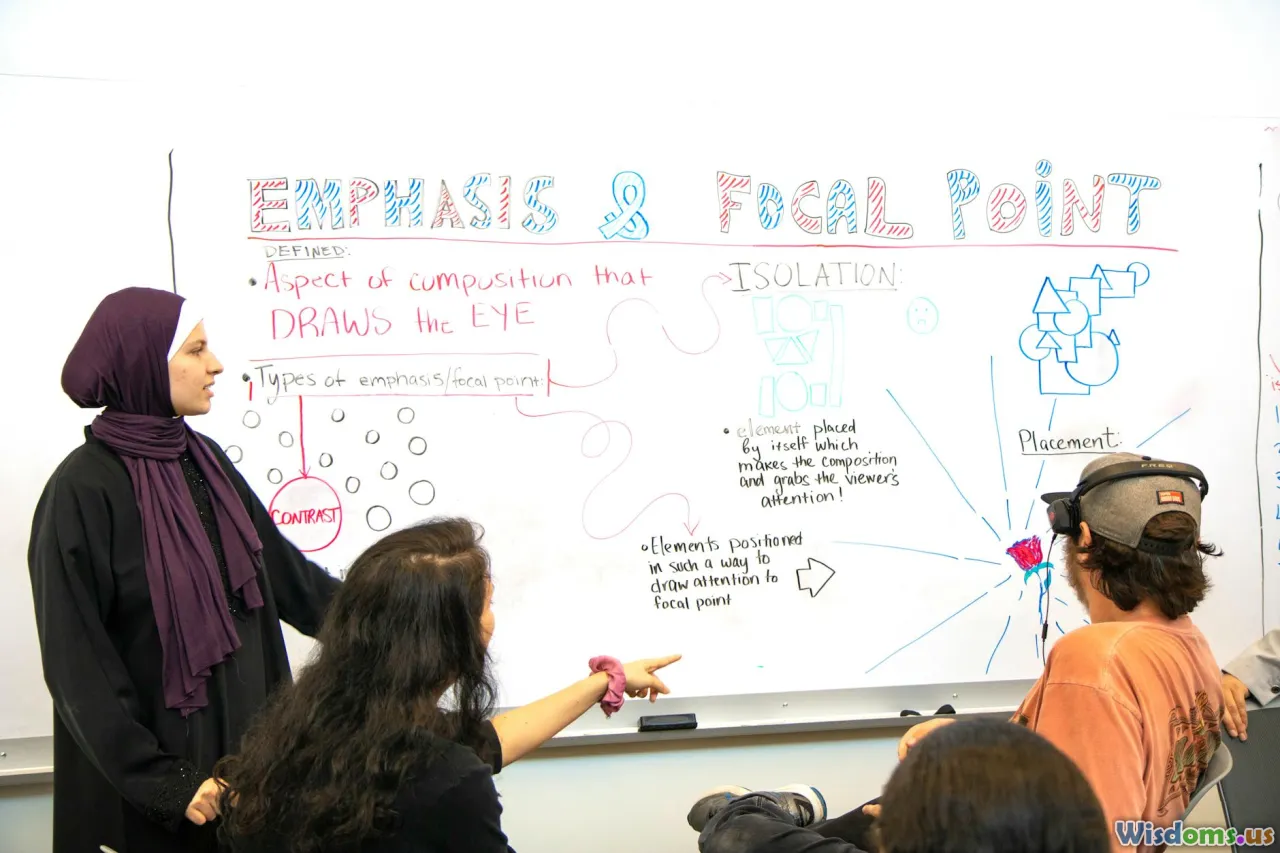 EMPHASIS & FOCAL POINT
DEFINED:
• Aspect of composition that
DRAWS the EYE
• Types of emphasis/focal point:
CONTRAST
ISOLATION:
• element placed
by itself which
makes the composition
and grabs the viewer's
attention!
Placement:
• Elements positioned
in such a way to
draw attention to
focal point
Wisdoms.us